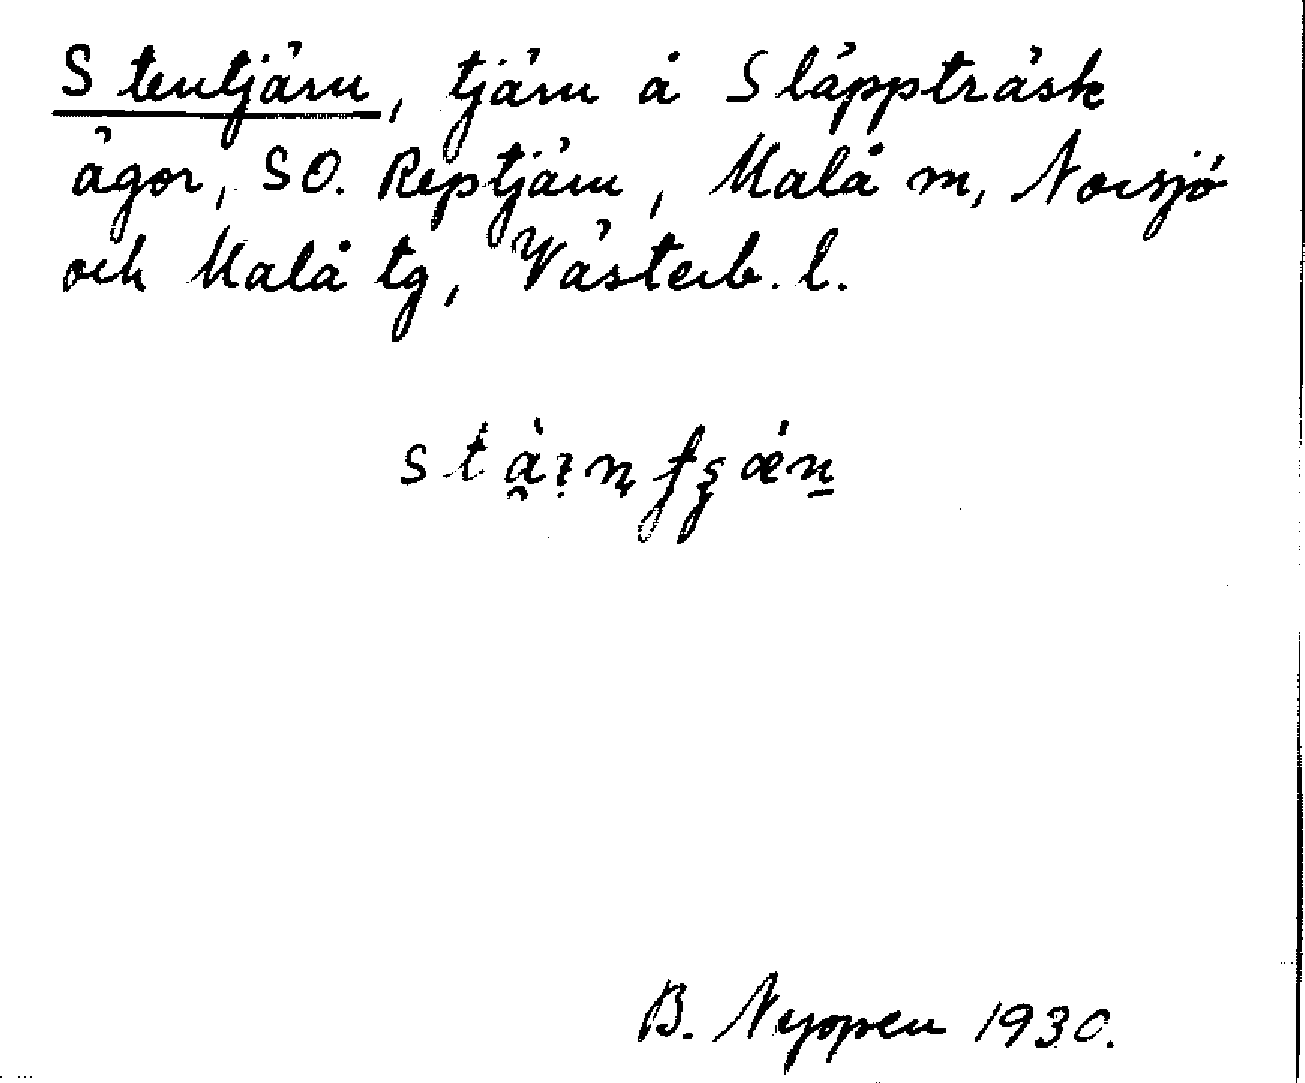 Stentjärn, tjärn å Släppträsk
ägor, SO. Reptjärn, Malå m, Norsjö
och Malå tg, Västerb. l.
B. Nyopen 1930.